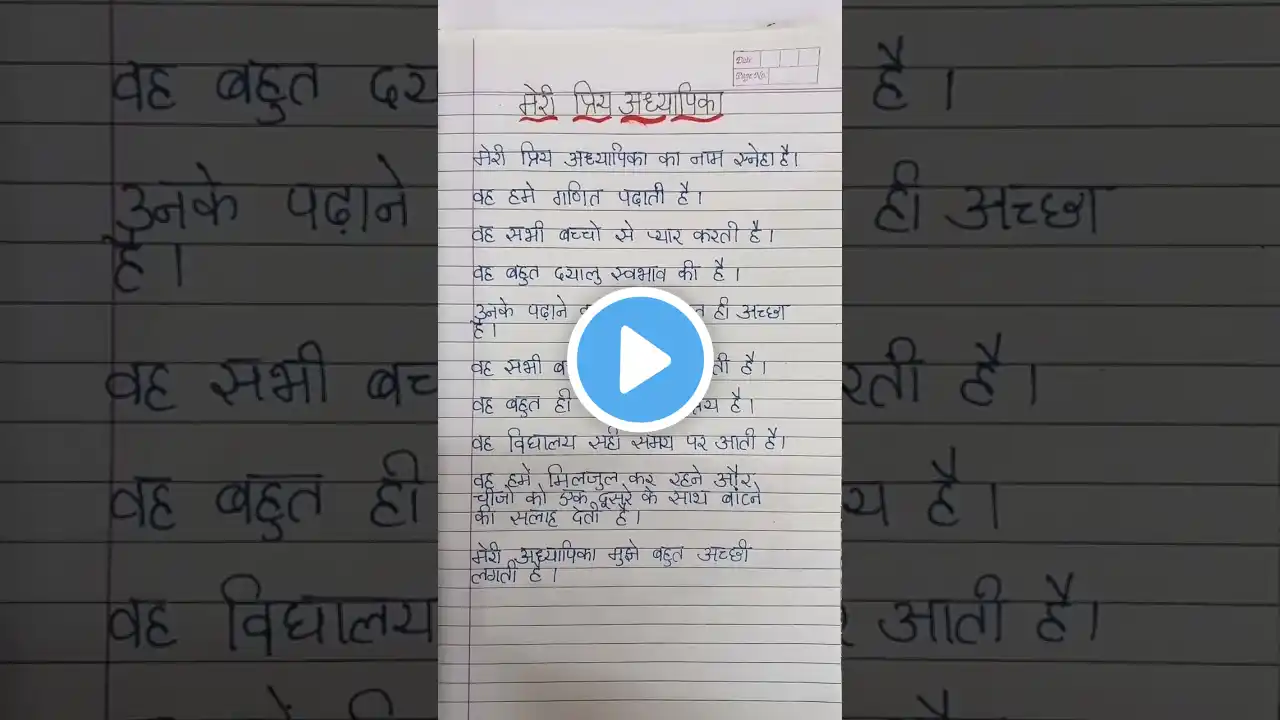 Date
Page No.
मेरी प्रिय अध्यापिका
मेरी प्रिय अध्यापिका का नाम स्नेहा है।
वह हमे गणित पढाती है।
वह सभी बच्चो से प्यार करती है।
वह बहुत दयालु स्वभाव की है।
उनके पढ़ाने ही अच्छा
है।
वह सभी है।
वह बहुत ही है।
वह विद्यालय सही समय पर आती है।
वह हमे मिलजुल कर रहने और
चीजो को एक दूसरे के साथ बाँटने
की सलाह देती है।
मेरी अध्यापिका मुझे बहुत अच्छी
लगती है।